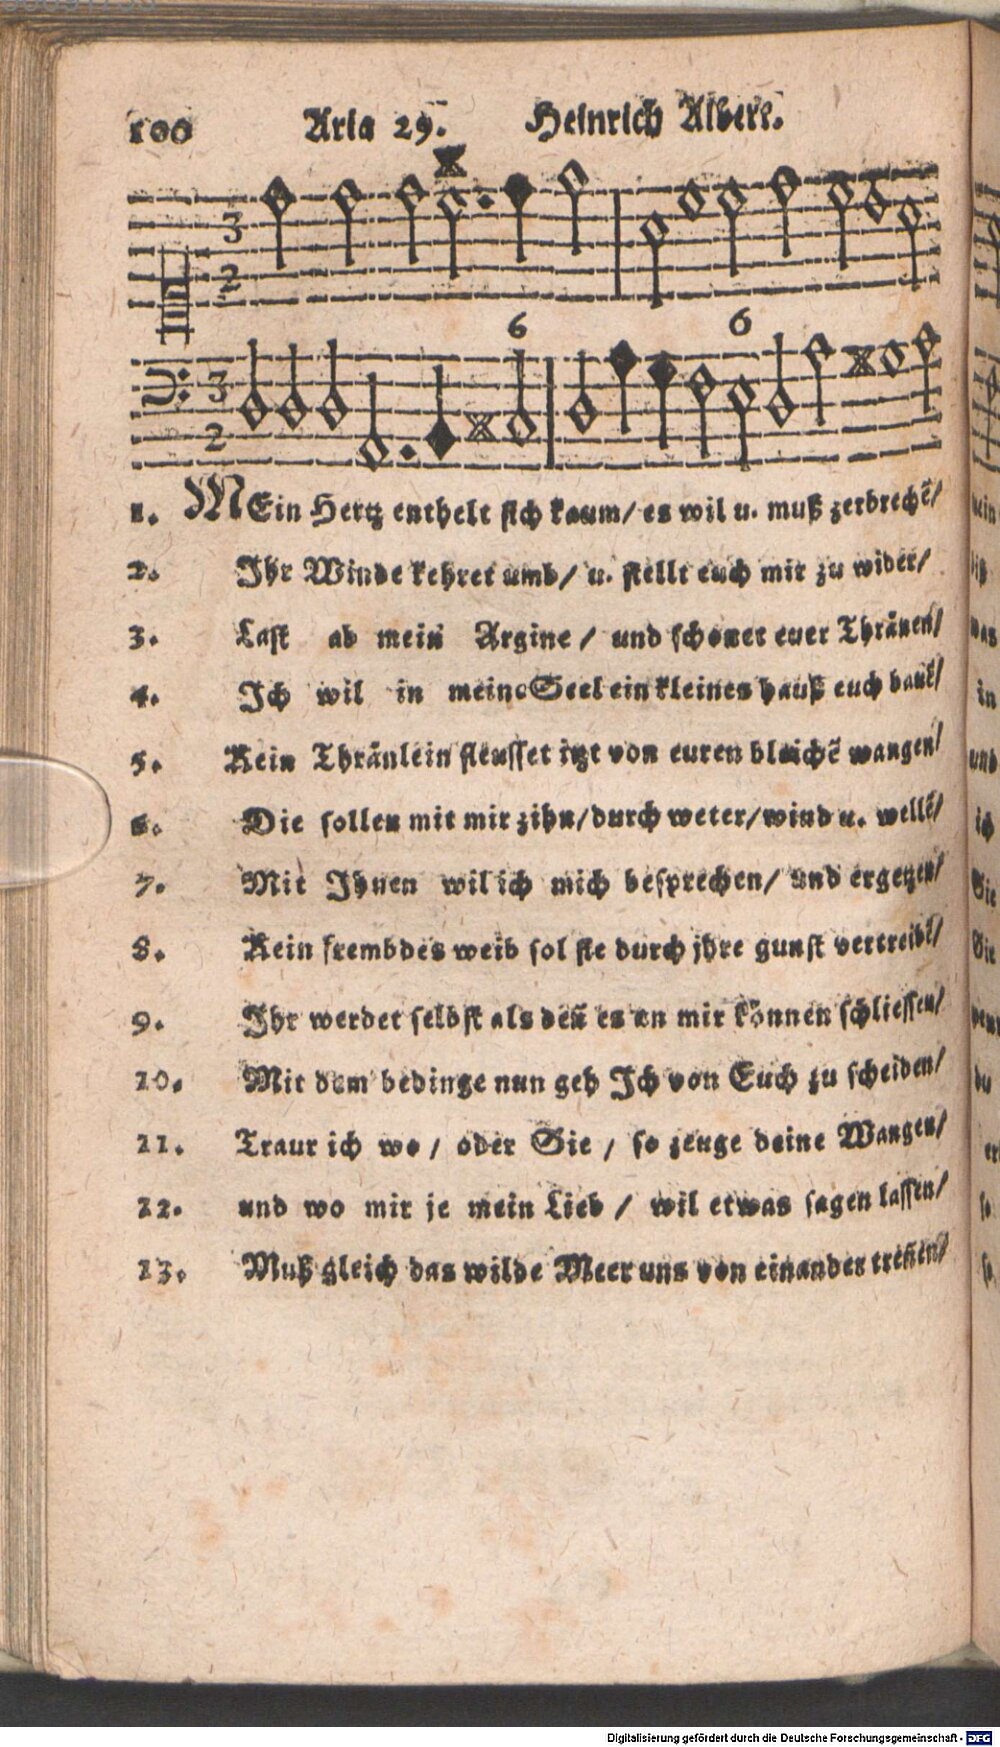 100 Aria 29. Heinrich Albert.
3
2
6 6
3
2
1. MEin Hertz enthelt sich kaum/ es wil u. muß zerbrechẽ/
2. Ihr Winde kehret umb/ u. stellt euch mir zu wider/
3. Last ab mein Argine/ und schonet euer Thränen/
4. Ich wil in meine Seel ein kleines hauß euch bauẽ/
5. Kein Thränlein fleusset itzt von euren bleichẽ wangen/
6. Die sollen mit mir zihn/durch weter/wind u. wellẽ/
7. Mit Ihnen wil ich mich besprechen/ und ergetzen/
8. Kein frembdes weib sol sie durch jhre gunst vertreibẽ/
9. Ihr werdet selbst als deñ es an mir können schliessen/
10. Mit dem bedinge nun geh Ich von Euch zu scheiden/
11. Traur ich wo/ oder Sie/ so zeuge deine Wangen/
12. und wo mir je mein Lieb/ wil etwas sagen lassen/
13. Muß gleich das wilde Meer uns von einander treñen/
Digitalisierung gefördert durch die Deutsche Forschungsgemeinschaft - DFG